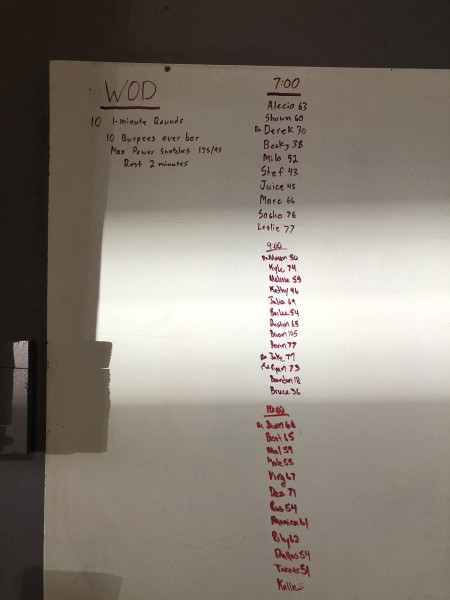 WOD
10 1-minute Rounds
10 Burpees over bar
Max Power Snatches 135/95
Rest 2 minutes
7:00
Alecio 63
Shawn 60
Rx Derek 30
Becky 38
Milo 52
Stef 43
Juice 45
Marc 66
Sasha 76
Leslie 77
9:00
50
Kyle 74
Melissa 59
Kathy 46
Julia 69
Bailee 54
Dustin 65
Brian 105
Kevin 77
Rx Jake 77
Ryan 73
Brandon 18
Bruce 36
10:00
64
Brent 65
Mal 59
55
King 67
Dez 71
Rus 54
Monica 61
Riley 62
Dallas 54
Tanner 51
Kallie